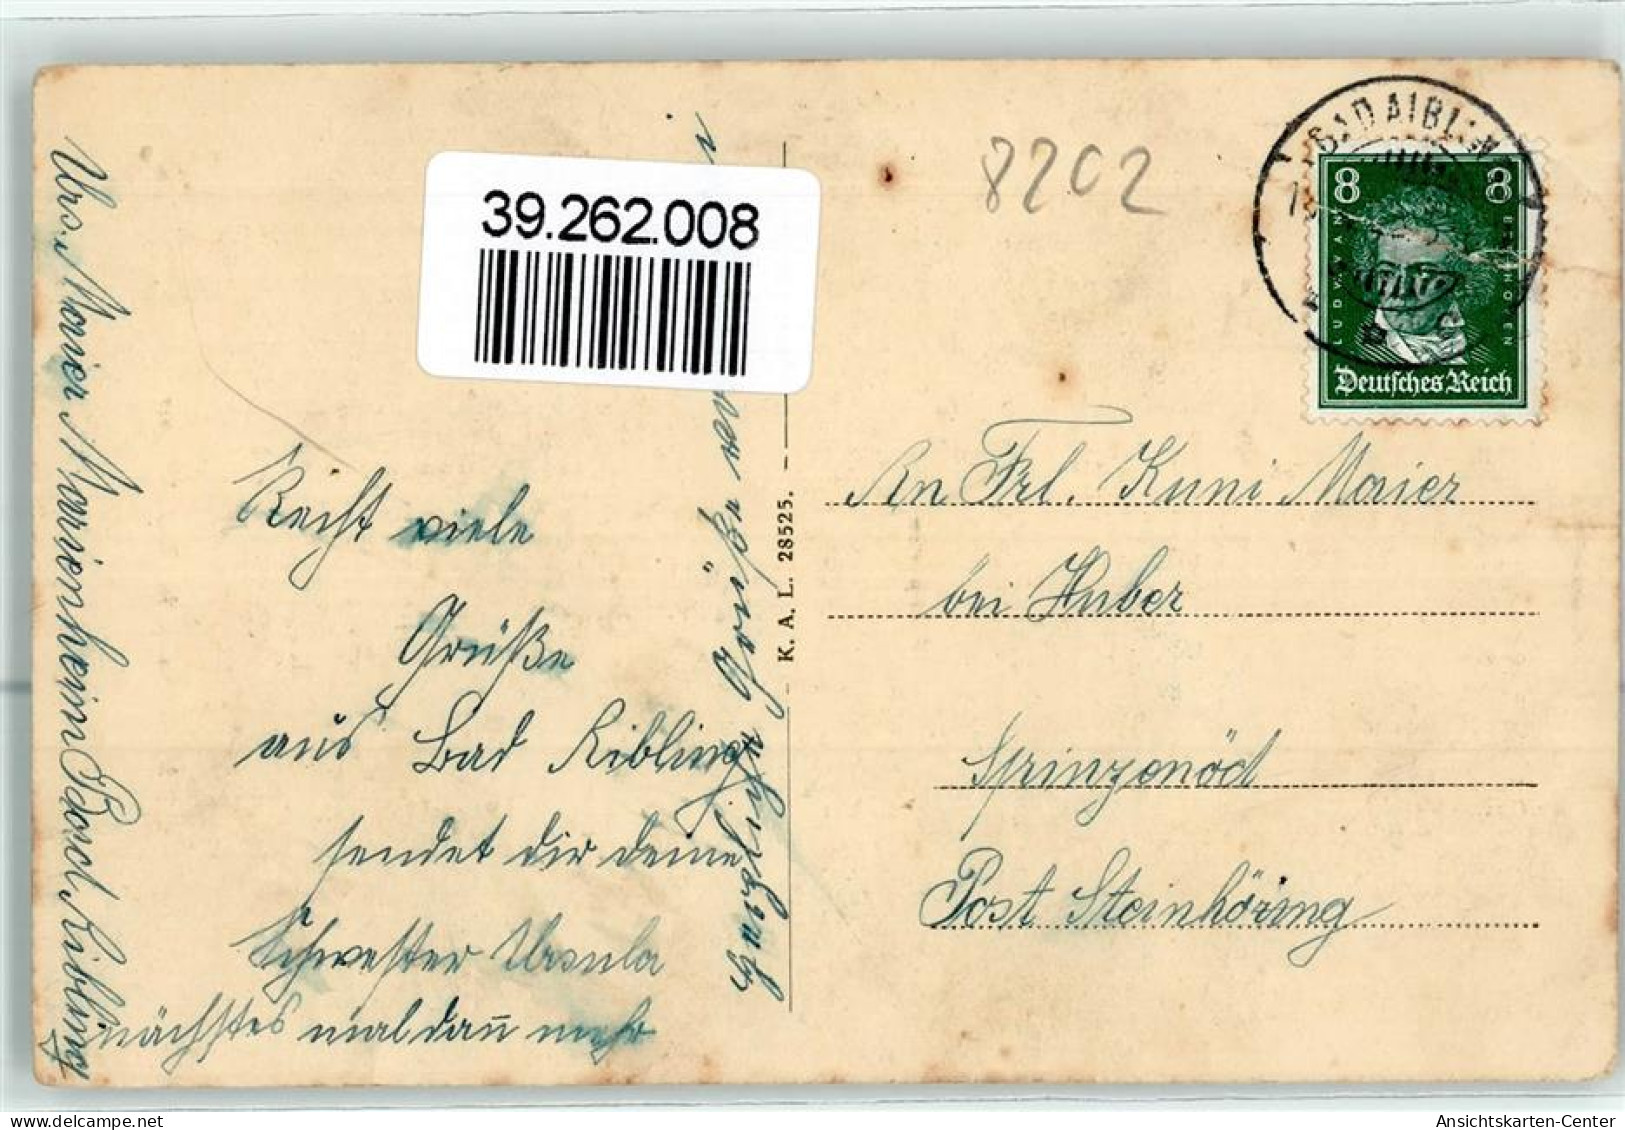 39.262.008
8202
BAD AIBLING
8 8
LUDW. VAN
BEETHOVEN
Deutsches Reich
Recht viele
Grüße
aus Bad Aibling
sendet dir deine
Schwester Ursula
nächstes mal dañ mehr
Urs. Maier Marienheim Bad Aibling
Grüße
K. A. L. 28525.
An Frl. Kuni Maier
bei Huber
Sprinzenöd
Post Steinhöring
Ansichtskarten-Center